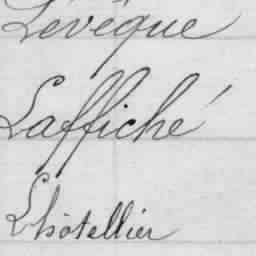 Lévêque
Laffiché
Lhôtellier